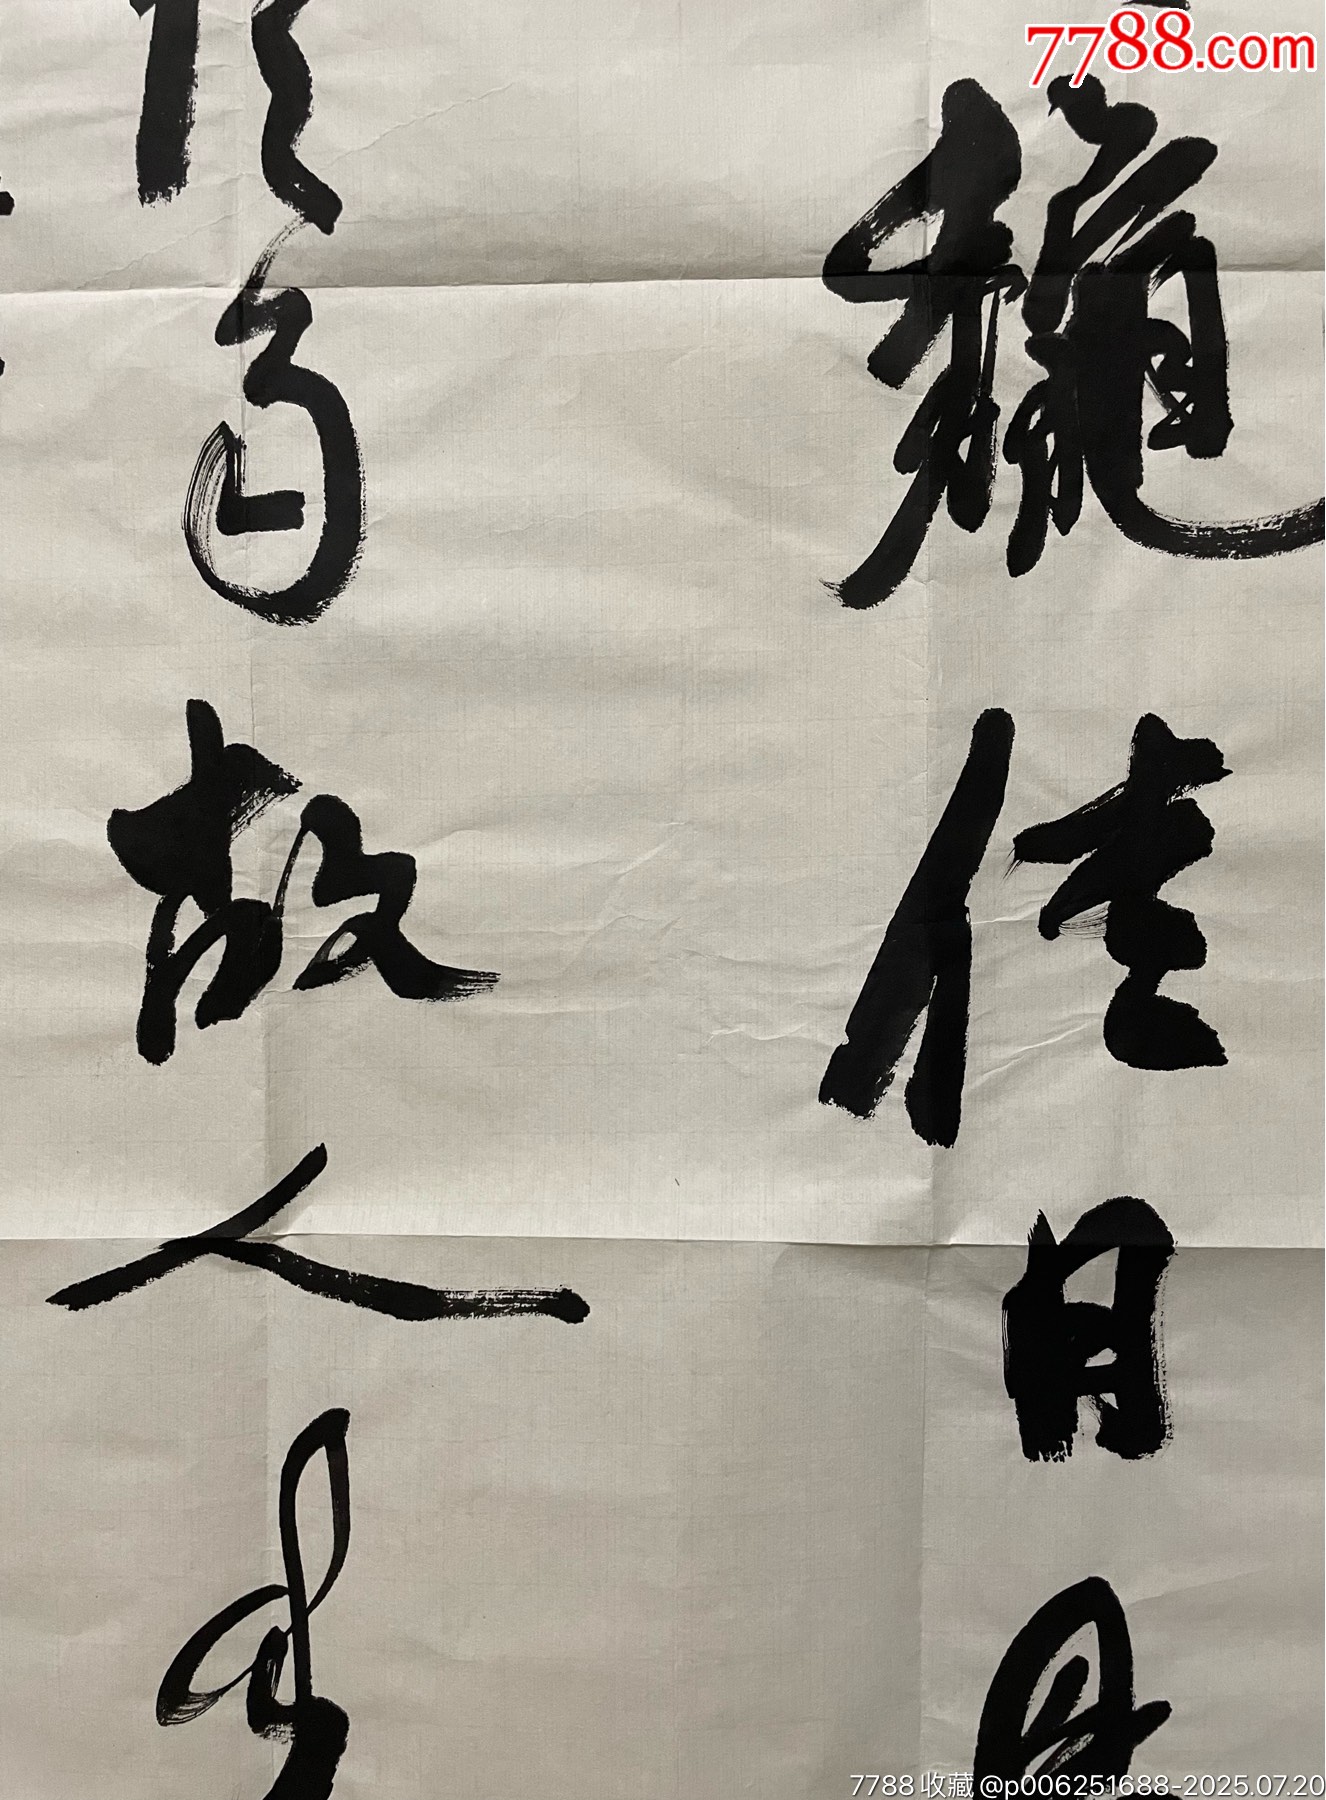 7788.com
龝佳日
雨故人來
7788收藏@p006251688-2025.07.20